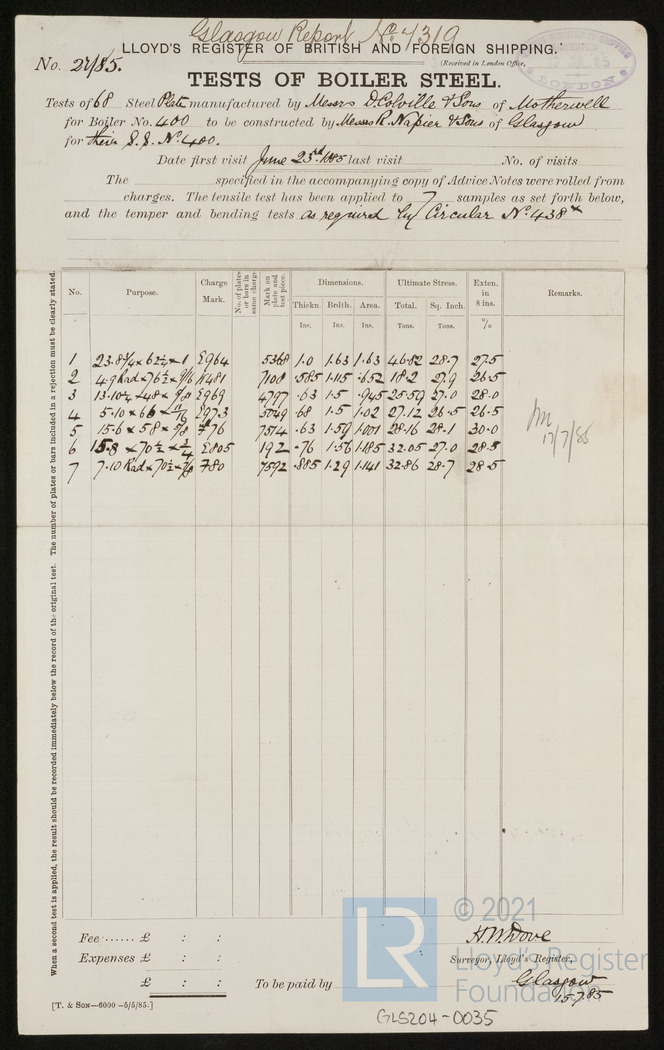 Glasgow Report No. 4319
LLOYD'S REGISTER OF BRITISH AND FOREIGN SHIPPING.
No. 27/85.
(Received in London Office,
LONDON
TESTS OF BOILER STEEL.
Tests of 68 Steel Plate manufactured by Messrs D. Colville & Sons of Motherwell
for Boiler No. 400 to be constructed by Messrs R. Napier & Sons of Glasgow
for their S.S. No. 400.
Date first visit June 23rd 1885 last visit No. of visits
The specified in the accompanying copy of Advice Notes were rolled from
charges. The tensile test has been applied to 7 samples as set forth below,
and the temper and bending tests as required by Circular No. 438*
No. Purpose. Charge Mark. No. of plates or bars in same charge. Mark on plate and test piece. Dimensions. Ultimate Stress. Exten. in 8 ins. Remarks.
Thickn. Brdth. Area. Total. Sq. Inch.
Ins. Ins. Ins. Tons. Tons. %
1 23.8¾ × 62¼ × 1 E964 5368 1.0 1.63 1.63 46.82 28.7 27.5
2 4.9 Rad × 76½ × 9/16 K481 7108 .585 1.115 .652 18.2 27.9 26.5
3 13.10¼ × 48 × 9/8 E969 4797 .63 1.5 .945 25.59 27.0 28.0
4 5.10 × 66 × 11/16 E973 5049 .68 1.5 1.02 27.12 26.5 26.5
5 15.6 × 58 × 5/8 776 7514 .63 1.59 1.001 28.16 28.1 30.0
6 15.8 × 70½ × ¾ E805 192 .76 1.56 1.185 32.05 27.0 28.5
7 7.10 Rad × 70½ × 7/8 780 7592 .885 1.29 1.141 32.86 28.7 28.5
17/7/85
When a second test is applied, the result should be recorded immediately below the record of the original test. The number of plates or bars included in a rejection must be clearly stated.
Fee ...... £ : :
Expenses £ : :
£ : :
To be paid by
H.W. Dove
Surveyor, Lloyd's Register,
Glasgow
15.7.85
[T. & SON—6000—5/5/85.]
LR
© 2021
Lloyd's Register
Foundation
GLS204-0035